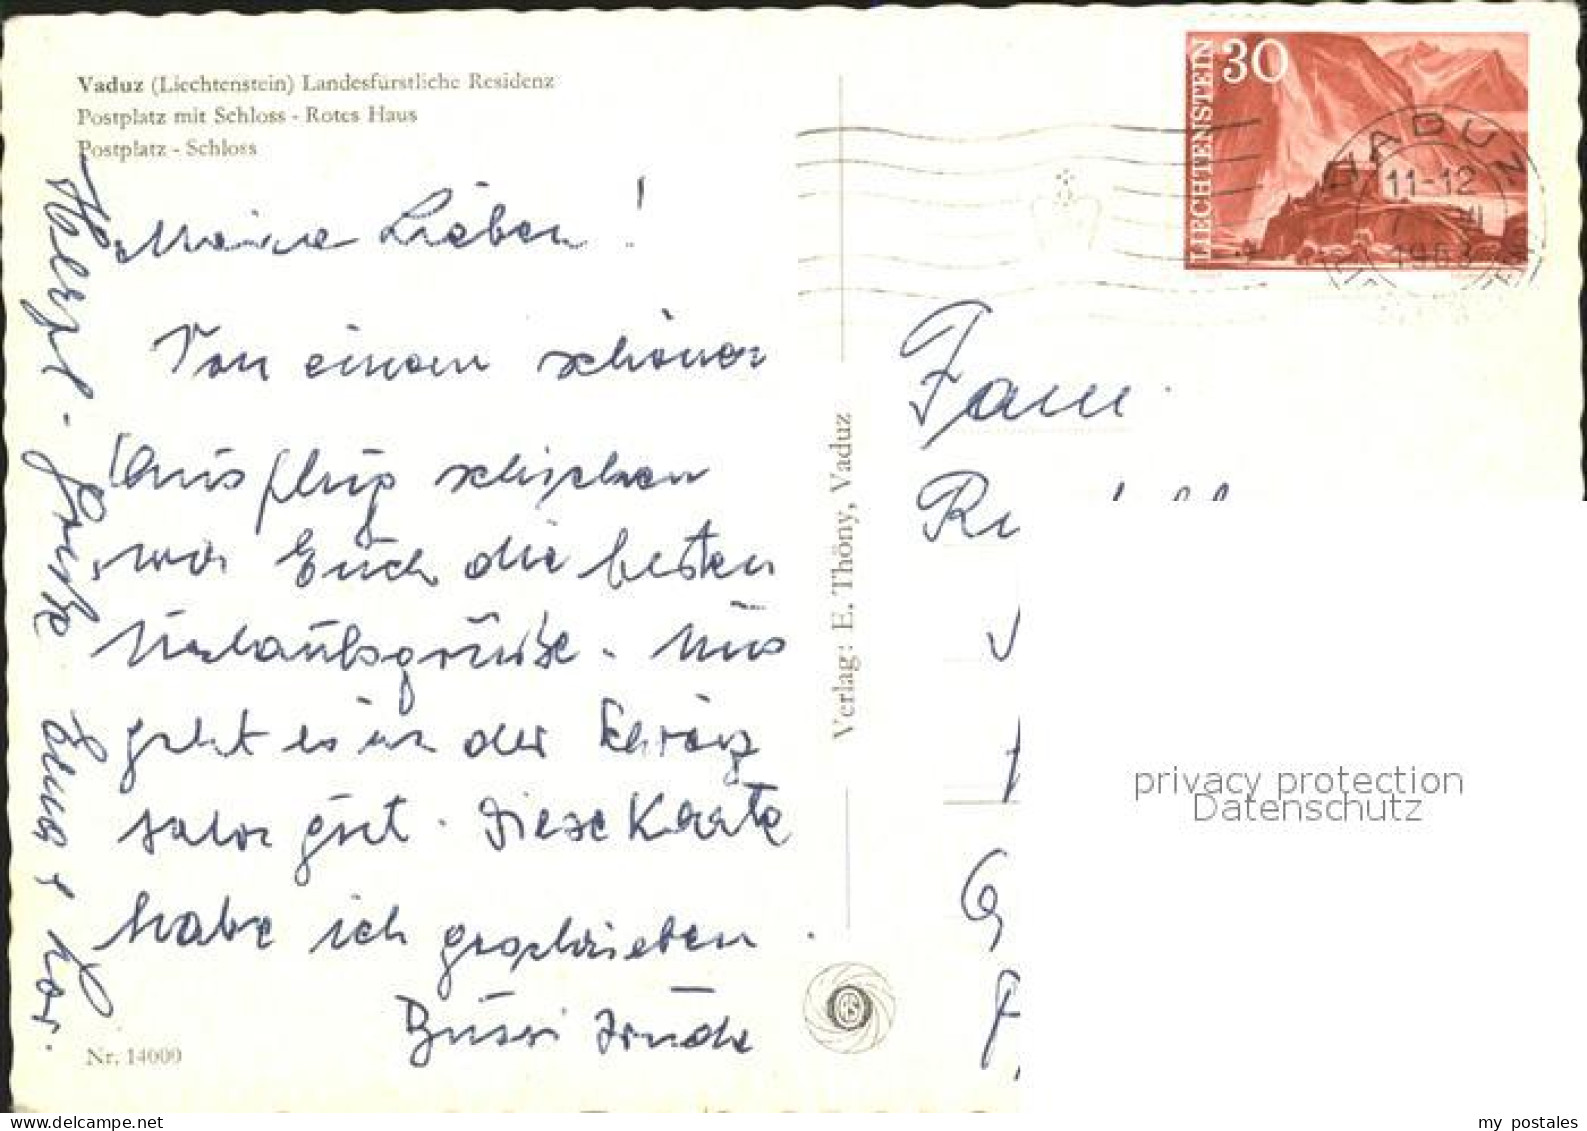 Vaduz (Liechtenstein) Landesfürstliche Residenz
Postplatz mit Schloss - Rotes Haus
Postplatz - Schloss
Meine Lieben!
Von einem schönen
Ausflug schicken
wir Euch die besten
Urlaubsgrüße. Uns
geht es in der Schweiz
sehr gut. Diese Karte
habe ich geschrieben.
Bussi Trude
Herzl. Grüße
Nr. 14000
Verlag: E. Thöny, Vaduz
30
LIECHTENSTEIN
VADUZ
11-12
1963
Fam.
privacy protection
Datenschutz
my postales